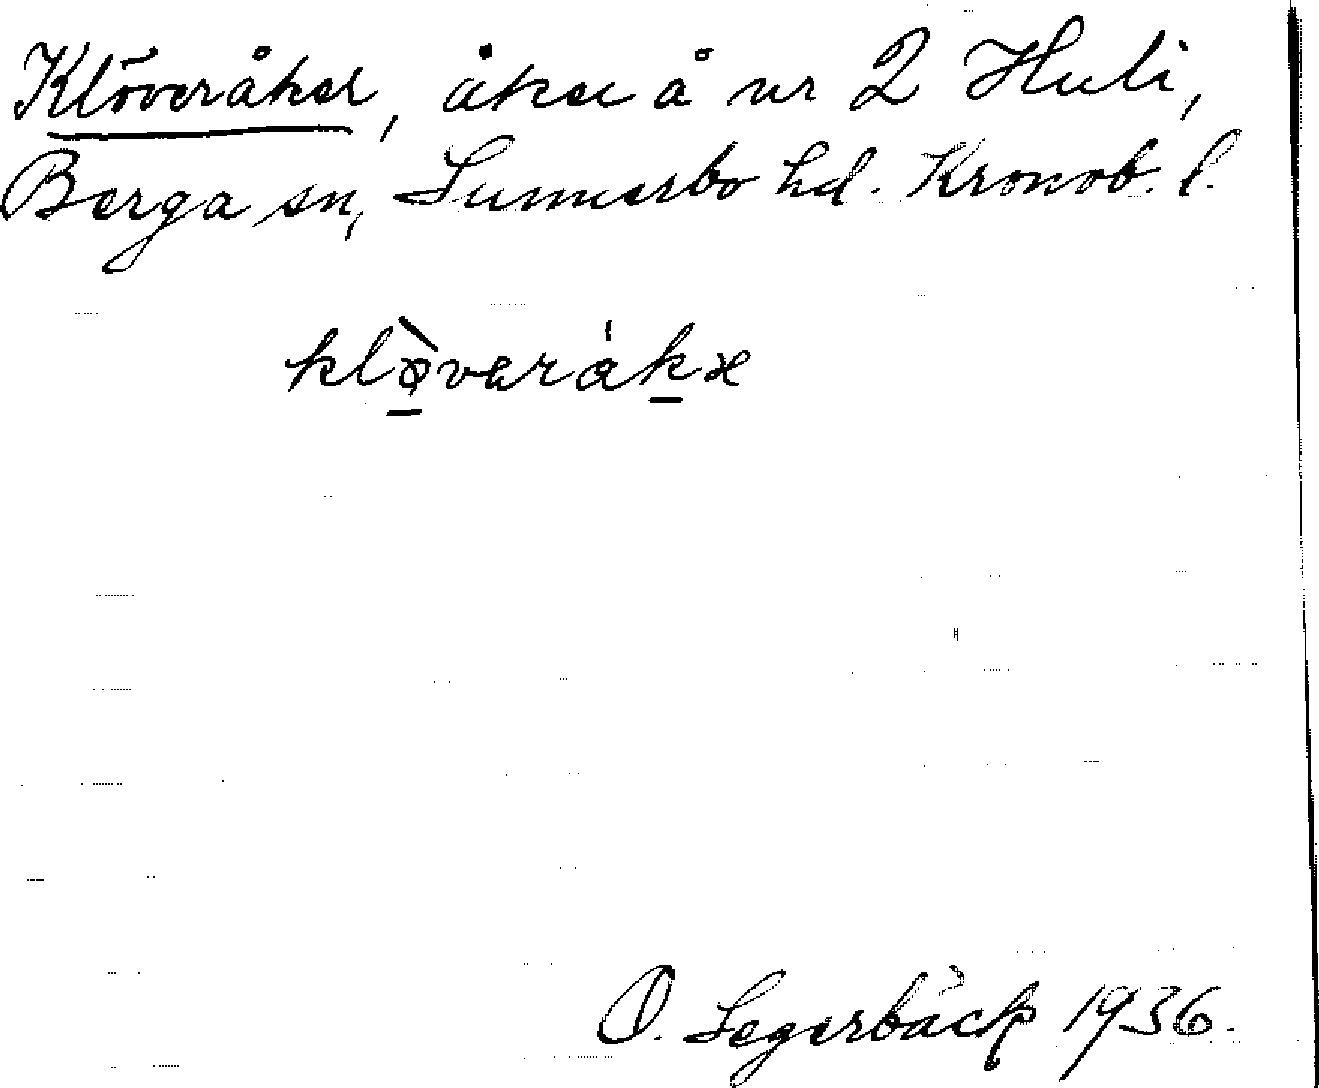 Klöveråker, åker å nr 2 Huli,
Berga sn, Sunnerbo hd. Kronob. l.
klø̀veråkæ
O. Segerbäck 1936.